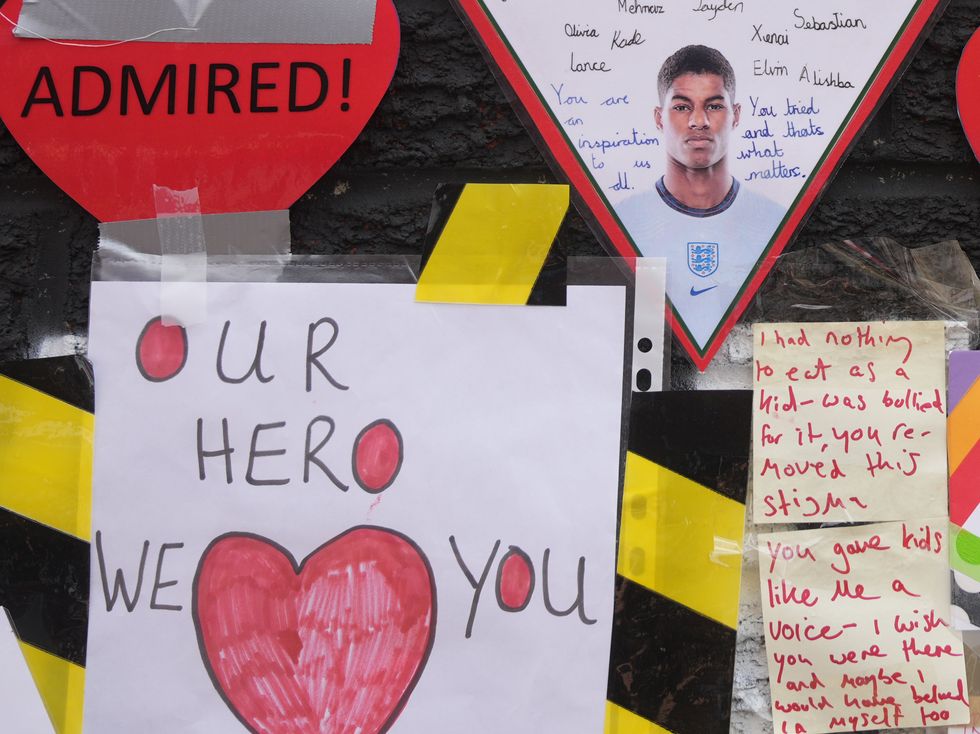 ADMIRED!
Mehmaz Jayden
Olivia Kade Xienai Sebastian
Lance Elvin Alishba
You are
an
inspiration
to us
all.
You tried
and thats
what
matters.
OUR
HERO
WE YOU
I had nothing
to eat as a
kid - was bullied
for it, you re-
moved this
stigma
you gave kids
like me a
voice - I wish
you were there
and maybe I
would have belived
in myself too